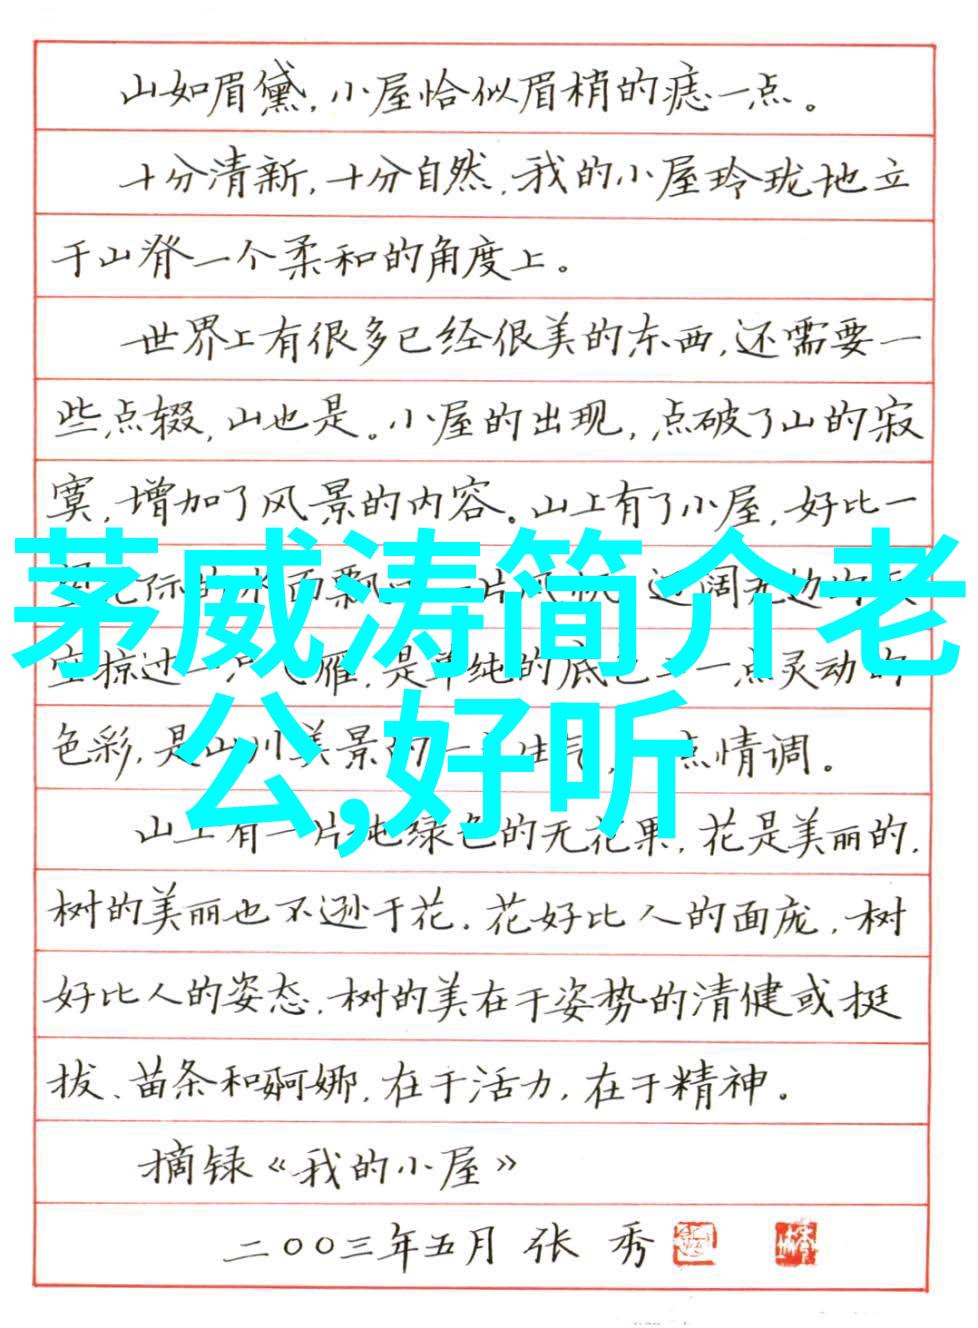 山如眉黛,小屋恰似眉梢的痣一点。
十分清新,十分自然,我的小屋玲珑地立
于山脊一个柔和的角度上。
世界上有很多已经很美的东西,还需要一
些点缀,山也是。小屋的出现,点破了山的寂
寞,增加了风景的内容。山上有了小屋,好比一
茅威涛简介老
空掠过一只飞雁,是单纯的底色上一点灵动的
色彩,是山川美景的一点生气,一点情调。
公,好听
山上有一片纯绿色的无花果,花是美丽的,
树的美丽也不逊于花。花好比人的面庞,树
好比人的姿态。树的美在于姿势的清健或挺
拔、苗条和婀娜,在于活力,在于精神。
摘录《我的小屋》
二〇〇三年五月 张 秀